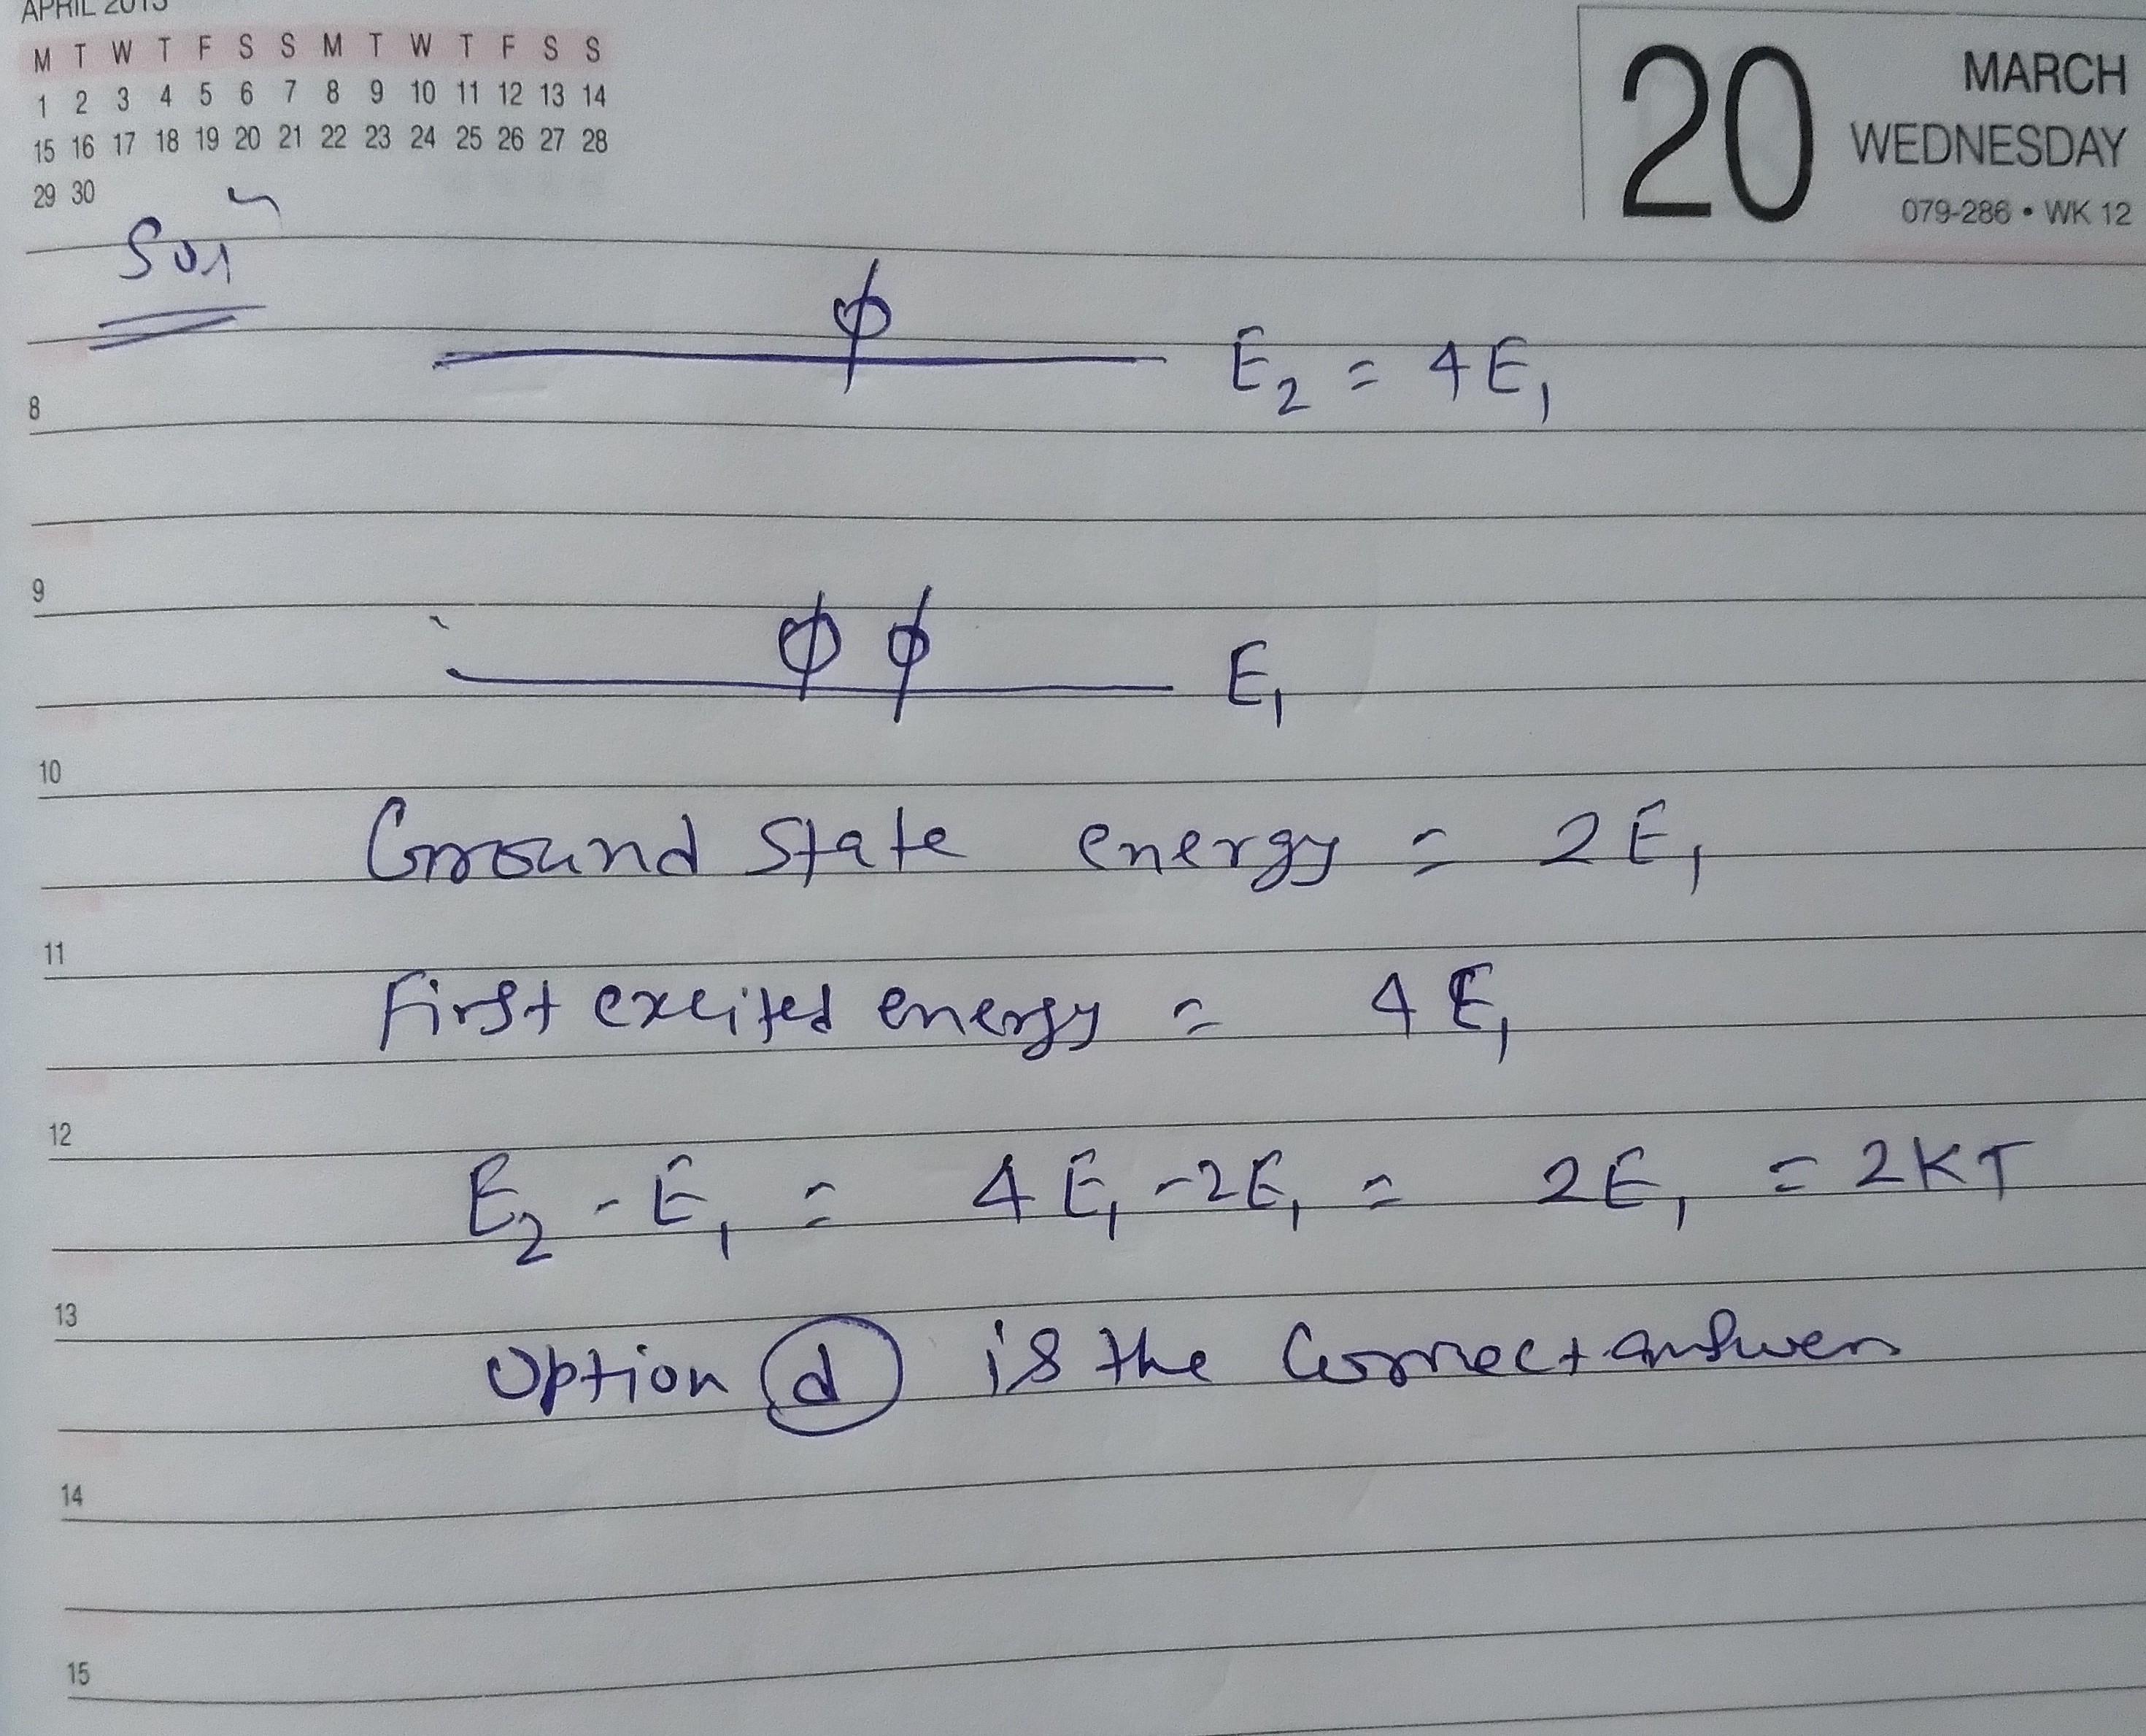 APRIL 2013
M T W T F S S M T W T F S S
1 2 3 4 5 6 7 8 9 10 11 12 13 14
15 16 17 18 19 20 21 22 23 24 25 26 27 28
29 30
20 MARCH
WEDNESDAY
079-286 • WK 12
Solⁿ
ϕ E₂ = 4E₁
8
9
ϕ ϕ E₁
10
Ground state energy = 2E₁
11
First excited energy = 4E₁
12
E₂ - E₁ = 4E₁ - 2E₁ = 2E₁ = 2KT
13
Option (d) is the Correct answer
14
15